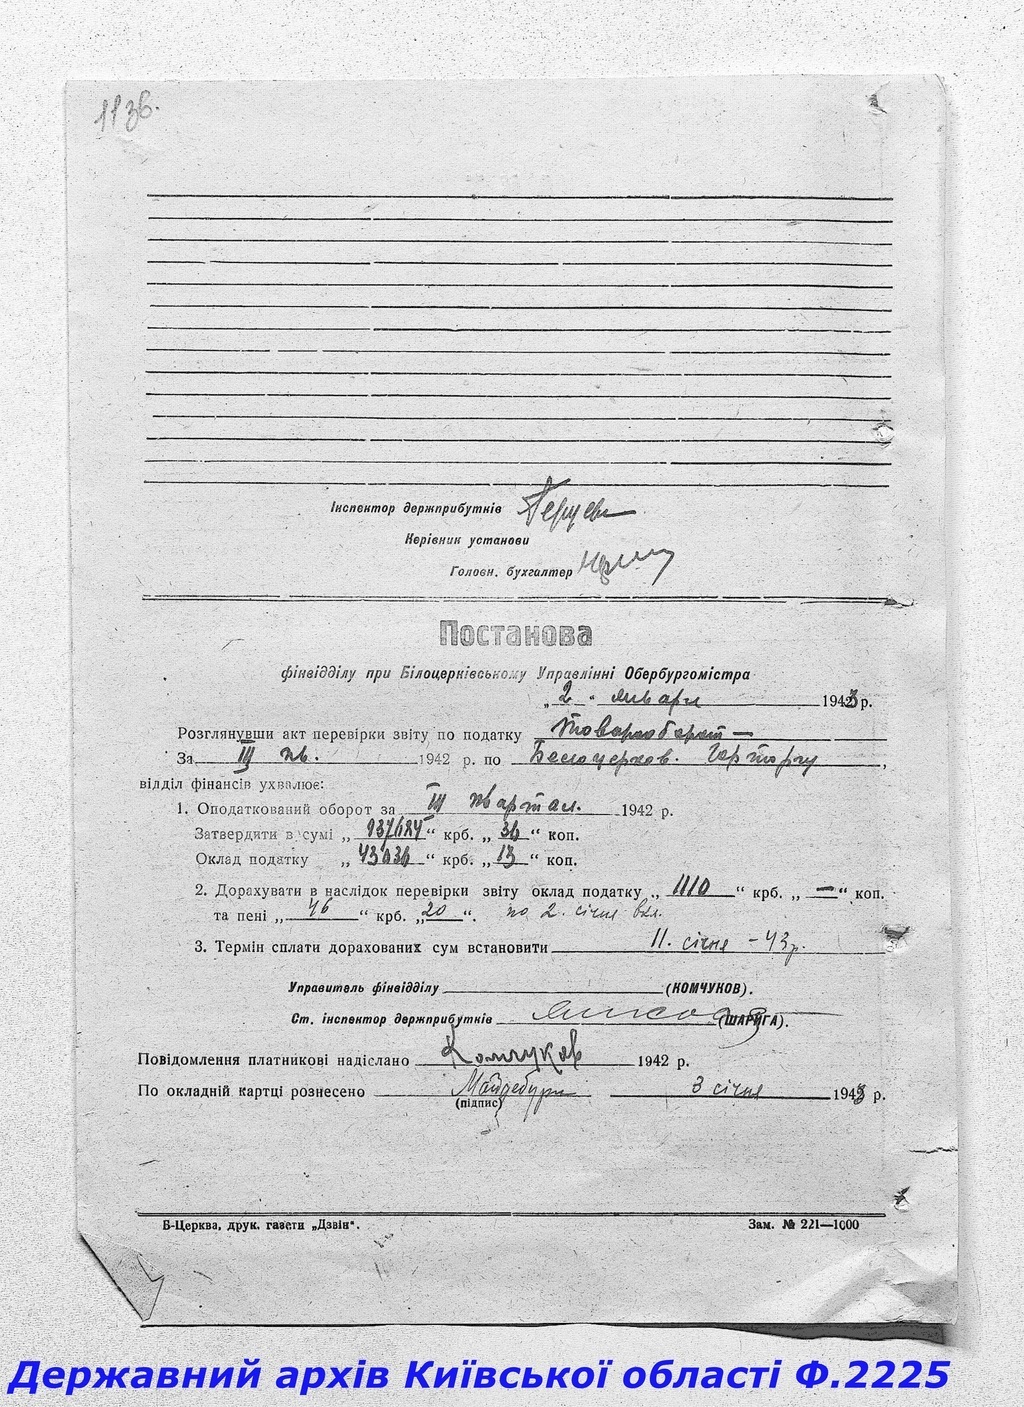 11зв.
Інспектор держприбутків
Керівник установи
Головн. бухгалтер
Постанова
фінвідділу при Білоцерківському Управлінні Обербургомістра
„ 2 “ января 1943 р.
Розглянувши акт перевірки звіту по податку товарооборот —
За III кв. 1942 р. по Белоцерков. Горторгу,
відділ фінансів ухвалює:
1. Оподаткований оборот за III квартал. 1942 р.
Затвердити в сумі „ “ крб. „ 36 “ коп.
Оклад податку „ 43036 “ крб. „ 13 “ коп.
2. Дорахувати в наслідок перевірки звіту оклад податку „ 1110 “ крб. „ — “ коп.
та пені „ 46 “ крб. „ 20 “. по 2. січня вкл.
3. Термін сплати дорахованих сум встановити 11. січня - 43 р.
Управитель фінвідділу (КОМЧУКОВ).
Ст. інспектор держприбутків (ШАРИГА).
Повідомлення платникові надіслано Комчуков 1942 р.
По окладній картці рознесено 3 січня 1943 р.
(підпис)
Б-Церква, друк. газети „Дзвін“. Зам. № 221—1000
Державний архів Київської області Ф.2225